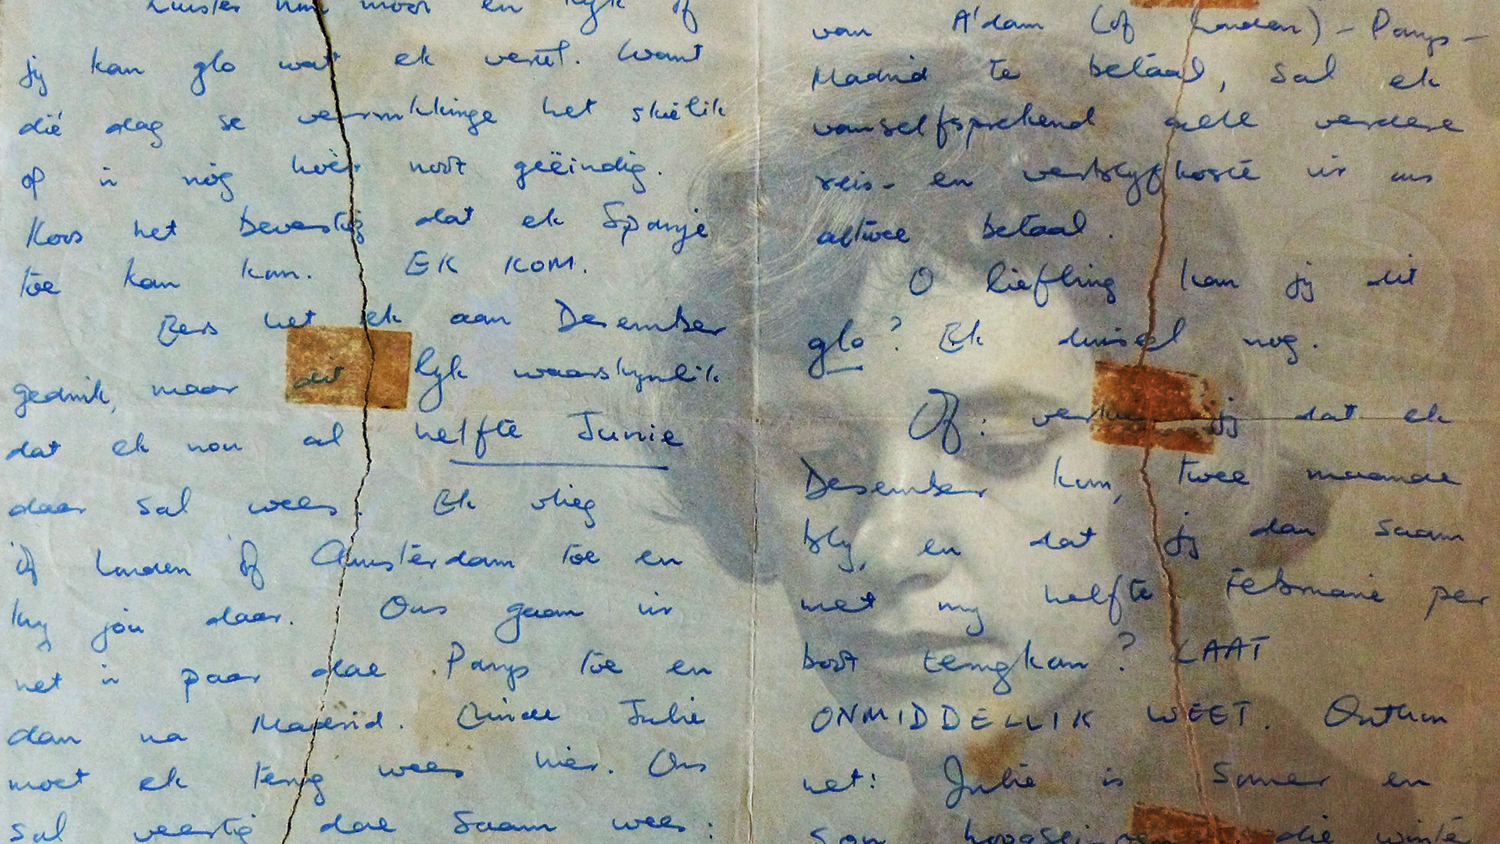 Luister nou mooi en kyk of
jy kan glo wat ek vertel. Want
dié dag se verwikkinge het skielik
op 'n nóg hoër noot geëindig.
Koos het bevestig dat ek Spanje
toe kan kom. EK KOM.
Eers het ek aan Desember
gedink, maar dit lyk waarskynlik
dat ek nou al helfte Junie
daar sal wees. Ek vlieg
óf Londen óf Amsterdam toe en
kry jóu daar. Ons gaan vir
net 'n paar dae Parys toe en
dan na Madrid. Einde Julie
moet ek terug wees hier. Ons
sal veertig dae saam wees:
van A'dam (of Londen) - Parys -
Madrid te betaal, sal ek
vanselfsprekend alle verdere
reis- en verblyfkoste vir ons
altwee betaal.
O liefling kan jy dit
glo? Ek duisel nog.
Óf: verkies jy dat ek
Desember kom, twee maande
bly, en dat jy dan saam
met my helfte Februarie per
boot terugkom? LAAT
ONMIDDELLIK WEET. Onthou
net: Julie is somer en
son die winter